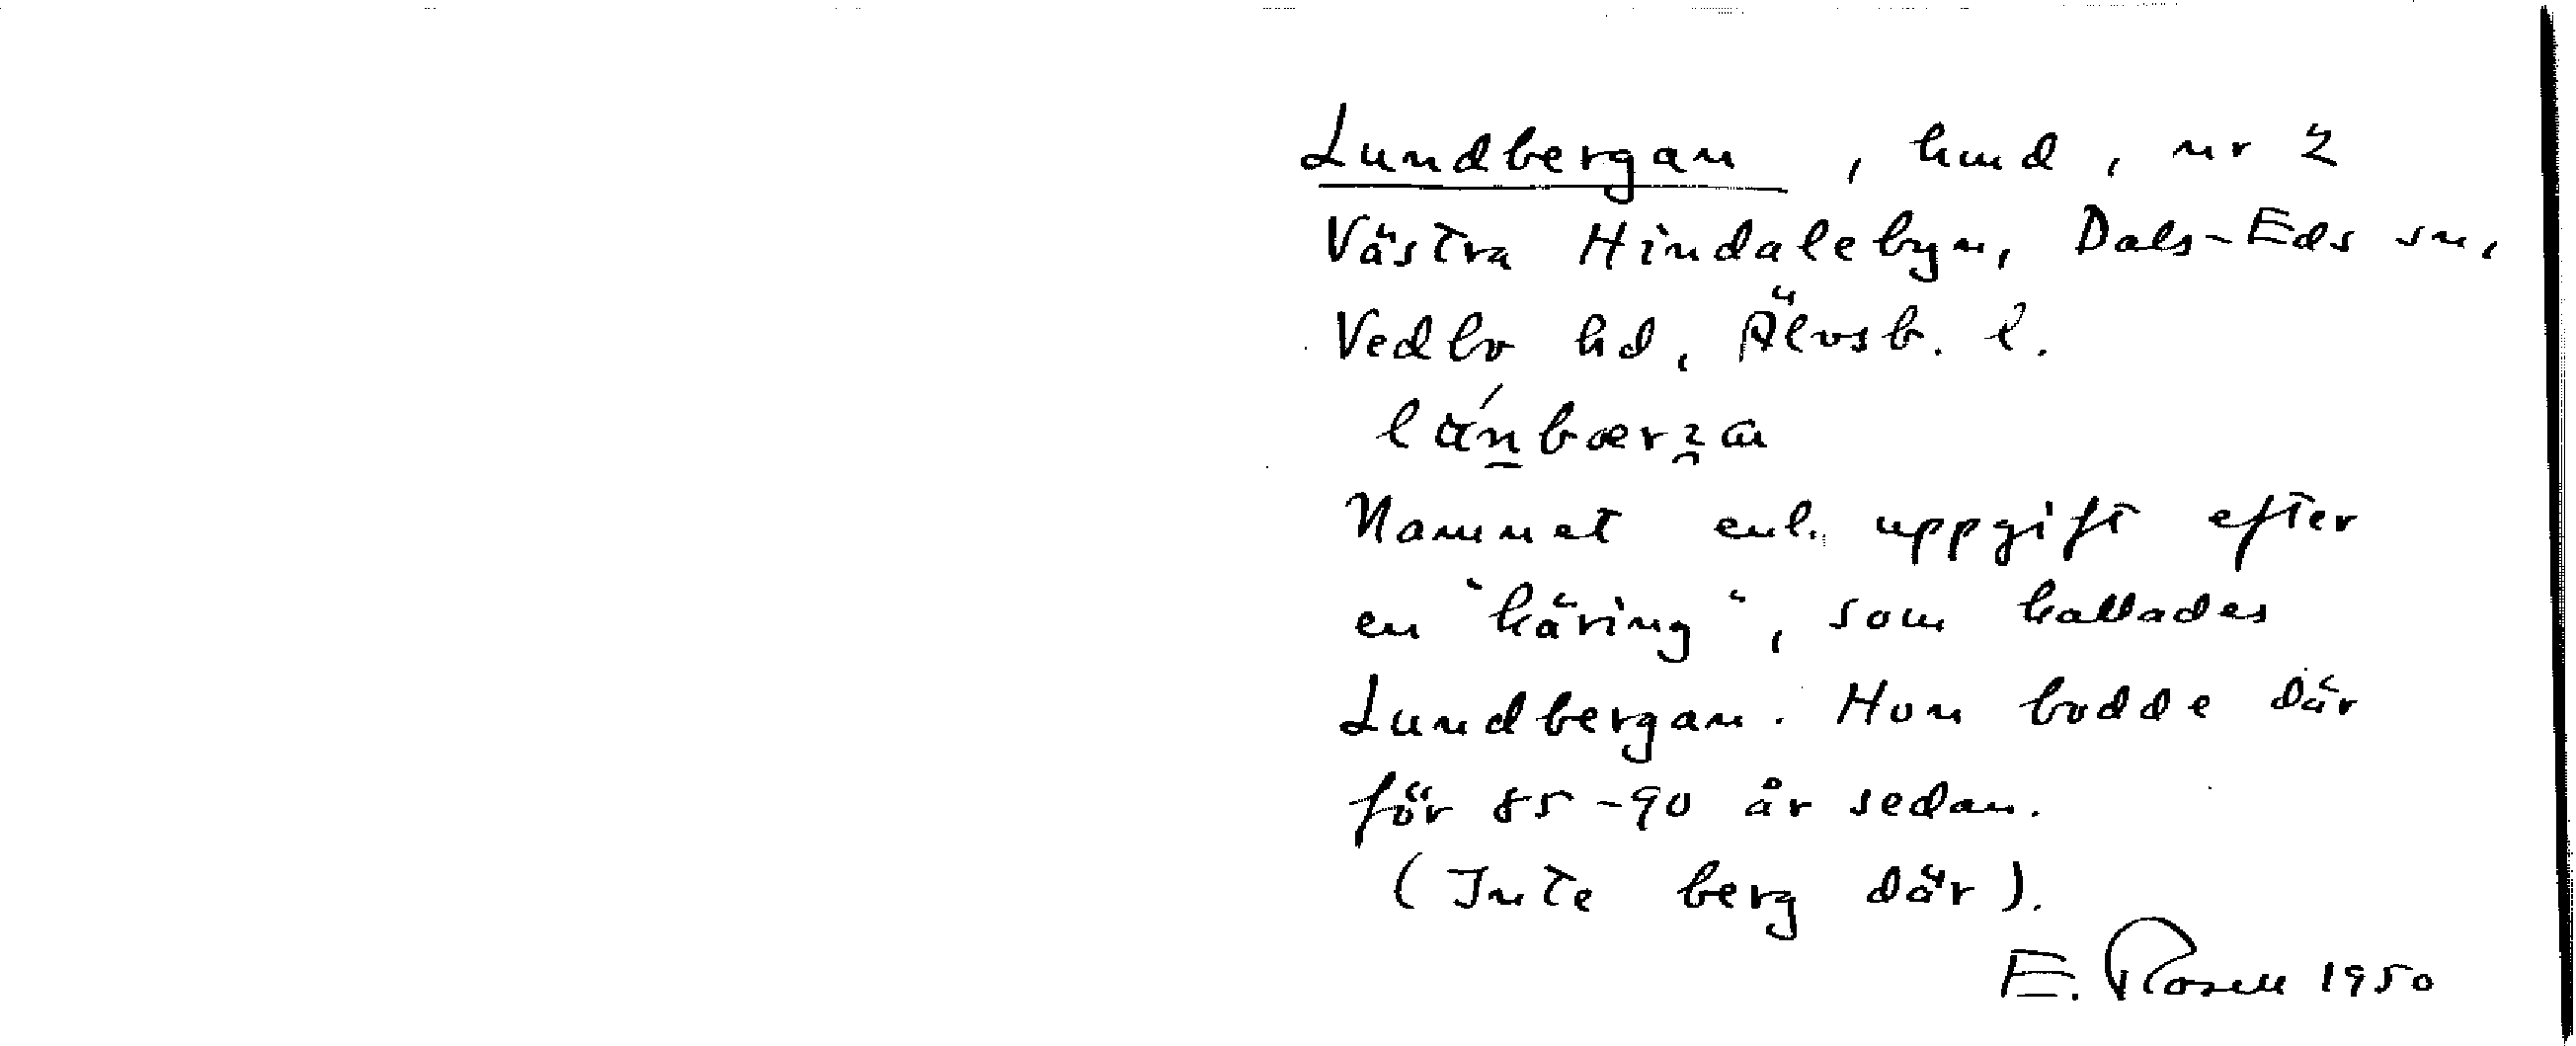 Lundbergan, hmd, nr 2
Västra Hindalebyn, Dals-Eds sn,
Vedbo hd, Älvsb. l.
Namnet enl. uppgift efter
en "käring", som kallades
Lundbergan. Hon bodde där
för 85-90 år sedan.
(Inte berg där).
E. Rosell 1950